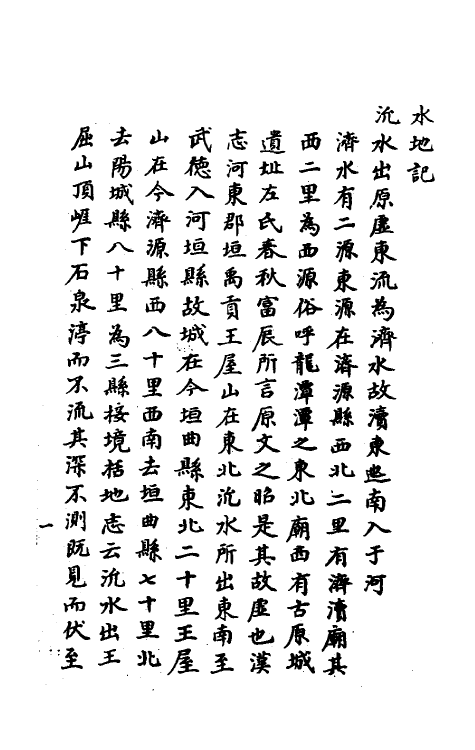 水地記
沇水出原虛東流為濟水故瀆東迆南入于河
濟水有二源東源在濟源縣西北二里有濟瀆廟其
西二里為西源俗呼龍潭潭之東北廟西有古原城
遺址左氏春秋富辰所言原文之昭是其故虛也漢
志河東郡垣禹貢王屋山在東北沇水所出東南至
武德入河垣縣故城在今垣曲縣東北二十里王屋
山在今濟源縣西八十里西南去垣曲縣七十里北
去陽城縣八十里為三縣接境括地志云沇水出王
屈山頂崕下石泉渟而不流其深不測既見而伏至
一